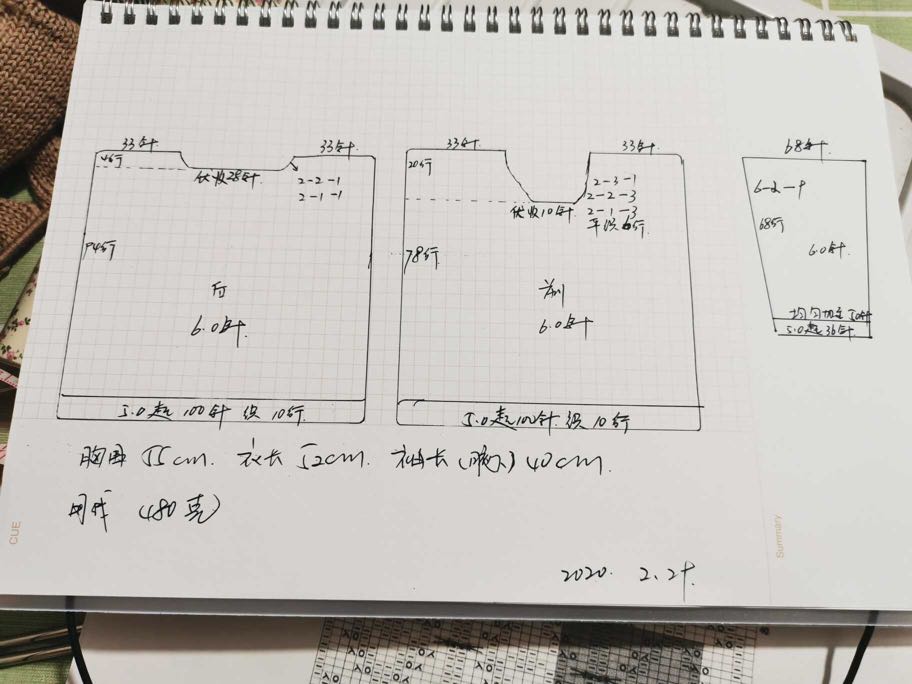 33针 33针
伏收28针
2-2-1
2-1-1
94行
后
6.0针
5.0起100针 织10行
33针 33针
20行
伏收10针
2-3-1
2-2-3
2-1-3
平织6行
78行
前
6.0针
5.0起100针 织10行
68针
6-2-9
68行
6.0针
均匀加至50针
5.0起36针
胸围 55cm. 衣长 52cm. 袖长(腋下) 40cm.
用线 (480克)
2020. 2. 29.
CUE
Summary